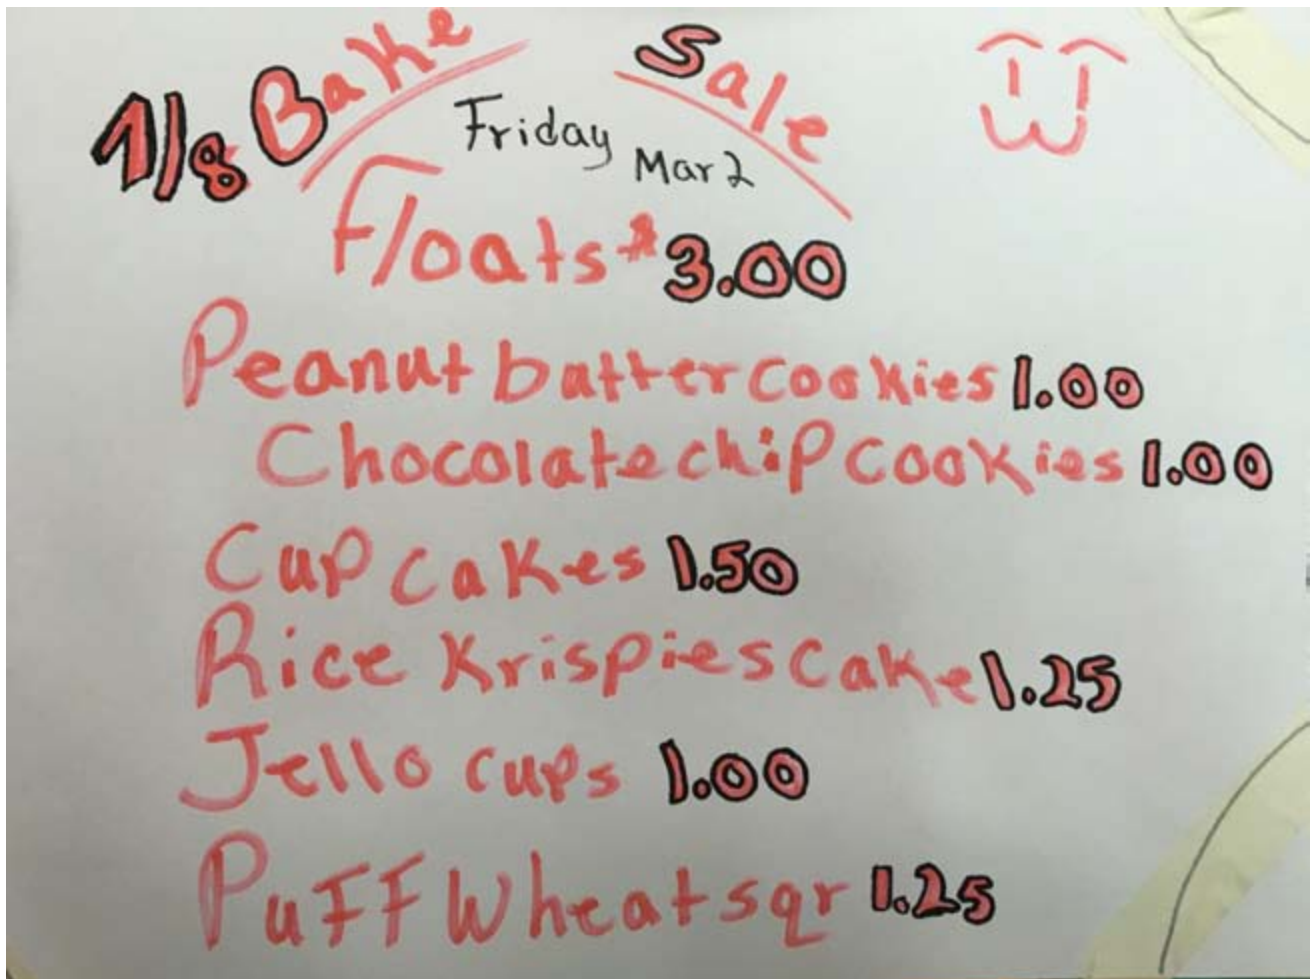 7/8 Bake Sale
Friday Mar 2
Floats $3.00
Peanut butter cookies 1.00
Chocolate chip cookies 1.00
Cup cakes 1.50
Rice Krispies cake 1.25
Jello cups 1.00
Puff Wheat sqr 1.25